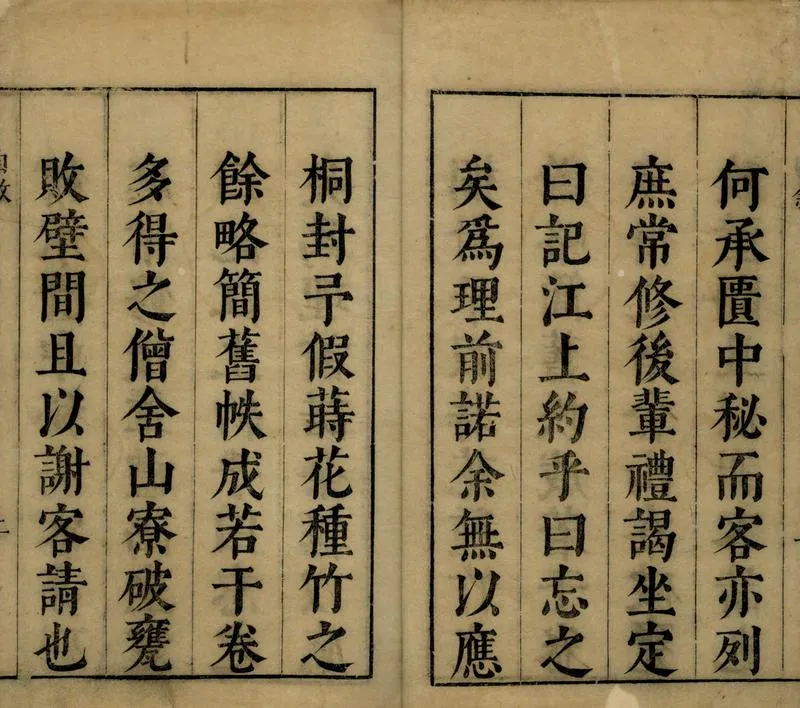 何承匱中秘而客亦列
庶常修後輩禮謁坐定
曰記江上約乎曰忘之
矣為理前諾余無以應
桐封予假蒔花種竹之
餘略簡舊帙成若干卷
多得之僧舍山寮破甕
敗壁間且以謝客請也